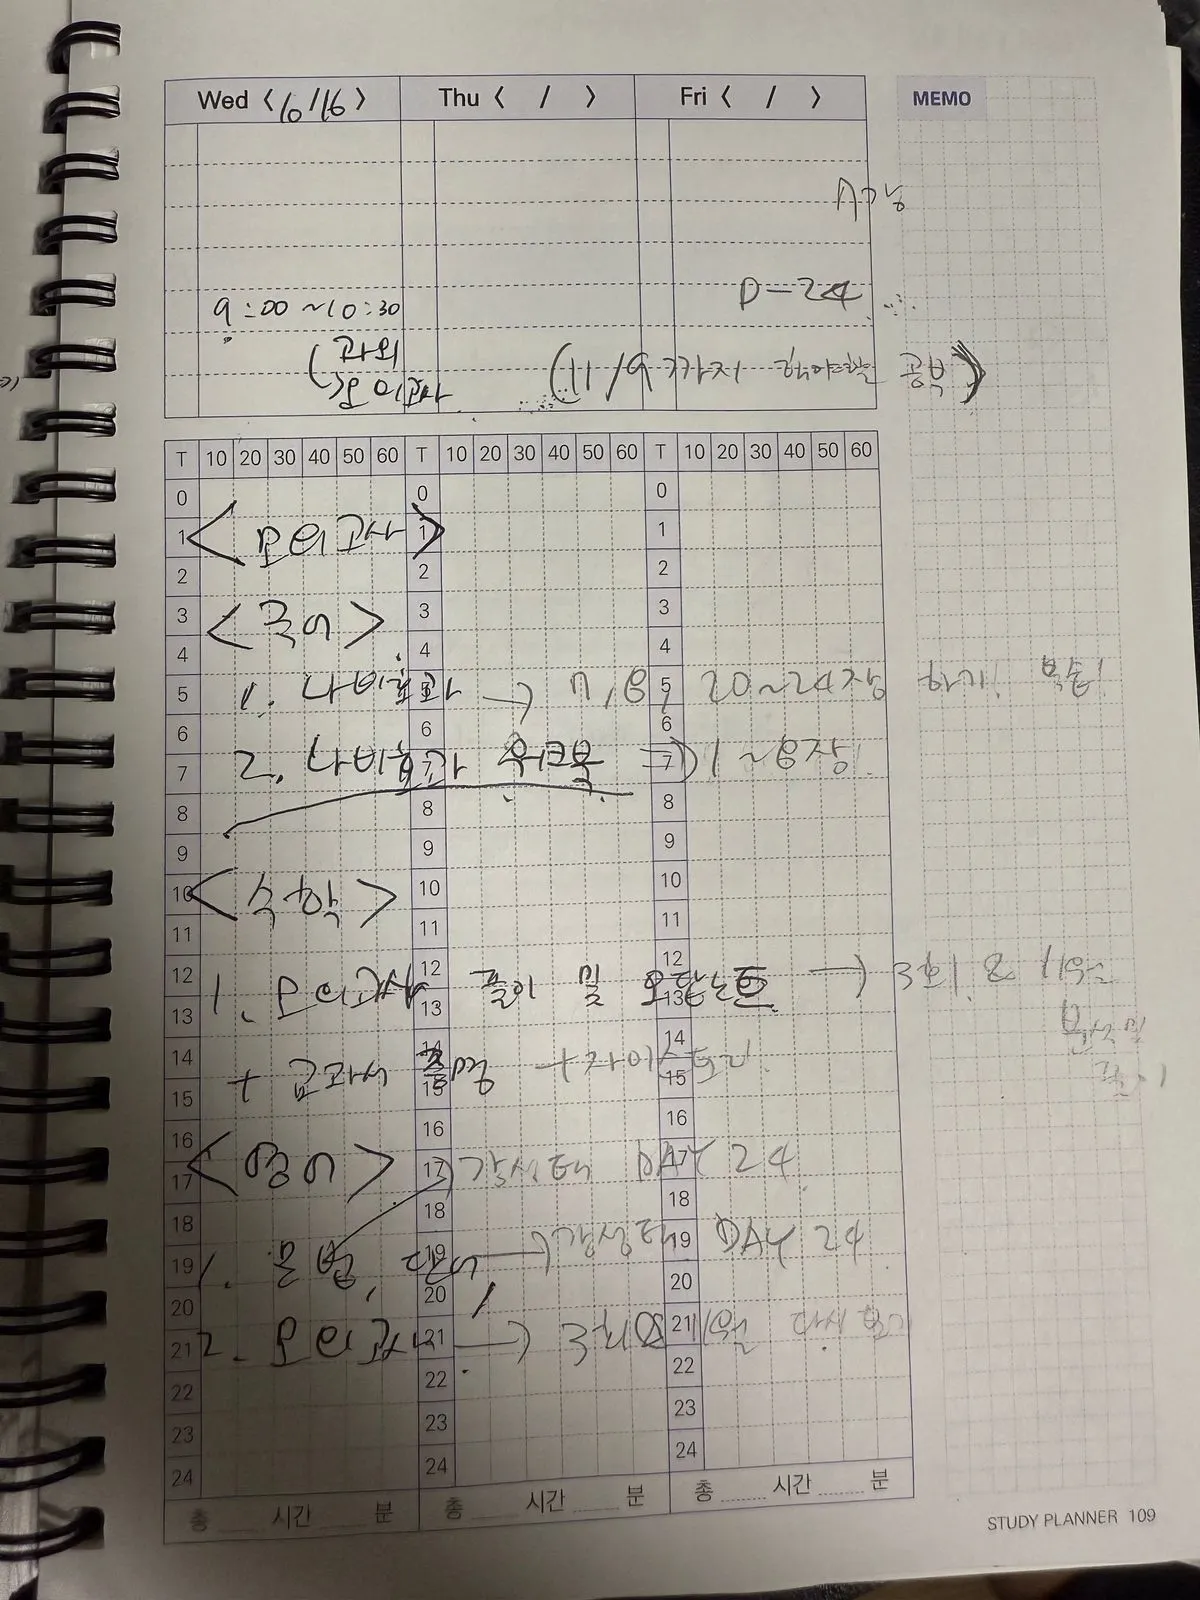 Wed < 6/16 > Thu < / > Fri < / > MEMO
D-24
9:00 ~10:30
(과외
모의고사
(11/9까지 해야할 공부)
T 10 20 30 40 50 60 T 10 20 30 40 50 60 T 10 20 30 40 50 60
0 0 0
1 <모의고사> 1 1
2 2 2
3 <국어> 3 3
4 4 4
5 1. 나비효과 → 7, 8, 20~24장 하기! 복습! 5 5
6 6 6
7 2. 나비효과 워크북 → 1~8장! 7 7
8 8 8
9 9 9
10 <수학> 10 10
11 11 11
12 12 12
1. 모의고사 풀이 및 오답노트 → 3회! & 11월
13 13 13
14 14 14
+ 교과서 + 자이스토리
15 15 15
16 16 16
17 <영어> 17 → DAY 24 17
18 18 18
19 1. → DAY 24 19 19
20 20 20
21 2. 모의고사 → 11월 다시 21 21
22 22 22
23 23 23
24 24 24
총 시간 분 총 시간 분 총 시간 분
STUDY PLANNER 109